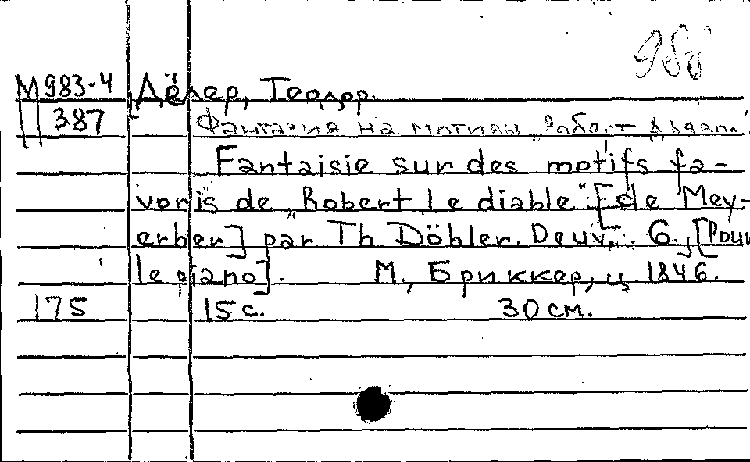 980
М983-4 Дёлер, Теодор.
387 [Фантазия на мотивы "Роберт
Fantaisie sur des motifs fa-
voris de "Robert le diable" [de Mey-
erber] par Th Döhler. Oeuv. 6., [Pour
le piano]. М., Бриккер, ц 1846.
175 15 с. 30 см.